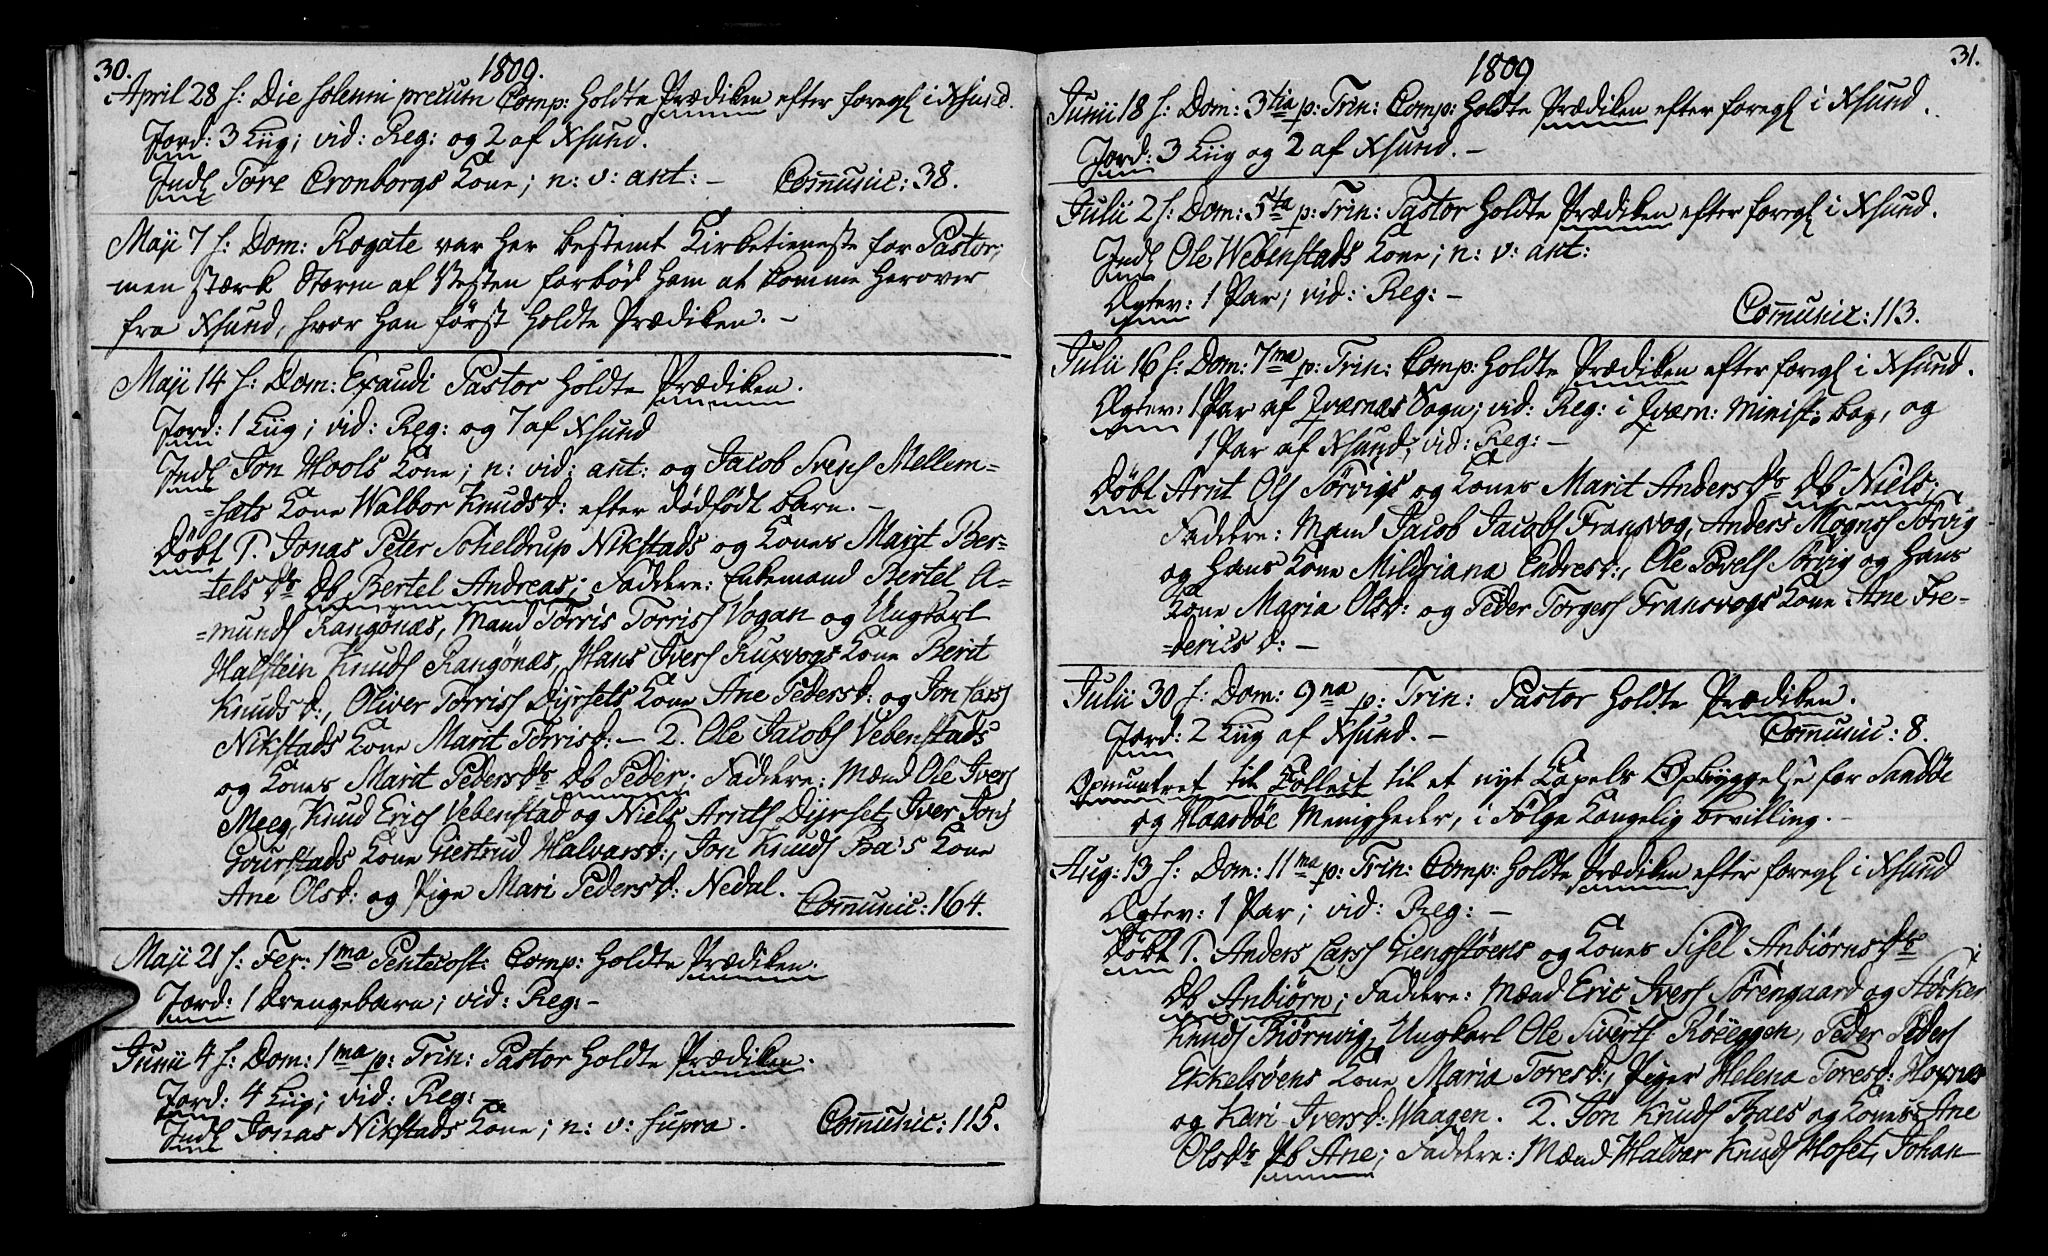 30.
1809.
April 28 h: Die solenni precum Comp: holdte Prædiken efter foregl i Xsund.
Jord: 3 Liig; vid: Reg: og 2 af Xsund.
Indl Tore Cronborgs Kone; n: v: ant: - Communic: 38.
Maji 7 h: Dom: Rogate var her bestemt Kirketieneste for Pastor;
men stærk Storm af Vesten forbød ham at komme herover
fra Xsund, hvor han først holdte Prædiken. -
Maji 14 h: Dom: Exaudi Pastor holdte Prædiken.
Jord: 1 Liig; vid: Reg: og 7 af Xsund
Indl Jon Hools Kone; n: vid: ant: og Jacob Svens Mellem-
=sæts Kone Walbor Knudsd: efter dødfødt barn. -
Døbt 1. Jonas Peter Scheldrup Nikstads og Kones Marit Ber-
telsdr Db Bertel Andreas; Faddere: Enkemand Bertel A-
=munds Rangønæs, Mand Torris Torriss Vogan og Ungkarl
Halstein Knuds Rangønæs, Hans Ivers Kuxvogs Kone Berit
Knudsd:, Oliver Torriss Dyrsets Kone Ane Pedersd: og Jon Lars
Nikstads Kone Marit Torrisd: - 2. Ole Jacobs Vebenstads
og Kones Marit Pedersdr Db Peder. Faddere: Mænd Ole Ivers
Meeg, Knud Erics Vebenstad og Niels Arnts Dyrset, Iver Jons
Gourstads Kone Giertrud Halvarsd:, Jon Knuds Ba's Kone
Ane Olsd: og Pige Mari Pedersd: Nedal.
Communic: 164.
Maji 21 h: Fer: 1ma Pentecost: Comp: holdte Prædiken.
Jord: 1 Drengebarn; vid: Reg: -
Junii 4 h: Dom: 1ma p: Trin: Pastor holdte Prædiken.
Jord: 4 Liig; vid: Reg: -
Indl Jonas Nikstads Kone; n: v: supra. Communic: 115.
31.
1809
Junii 18 h: Dom: 3tia p: Trin: Comp: holdte Prædiken efter foregl i Xsund.
Jord: 3 Liig og 2 af Xsund. -
Julii 2 h: Dom: 5ta p: Trin: Pastor holdte Prædiken efter foregl i Xsund.
Indl Ole Webenstads Kone; n: v: ant:
Ægtev: 1 Par; vid: Reg: -
Communic: 113.
Julii 16 h: Dom: 7ma p: Trin: Comp: holdte Prædiken efter foregl i Xsund.
Ægtev: 1 Par af Qværnæs Sogn; vid: Reg: i Qværn: Minist: bog, og
1 Par af Xsund; vid: Reg: -
Døbt Arnt Ols Torvigs og Kones Marit Andersdr Db Niels;
Faddere: Mand Jacob Jacobs Fransvog, Anders Mogns Torvig
og hans Kone Mildriana Endresd:, Ole Povels Torvig og hans
Kone Maria Olsd: og Peder Torgers Fransvogs Kone Ane Fre-
=dericsd: -
Julii 30 h: Dom: 9na p: Trin: Pastor holdte Prædiken.
Jord: 2 Liig af Xsund. - Communic: 8.
Opmuntret til Collect til et nyt Capels Opbyggelse for Sandøe
og Haarøe Menigheder, i Følge Kongelig bevilling. -
Aug: 13 h: Dom: 11ma p: Trin: Comp: holdte Prædiken efter foregl i Xsund
Ægtev: 1 Par; vid: Reg: -
Døbt 1. Anders Lars Giengstøens og Kones Sisel Anbiørnsdr
Db Anbiørn; Faddere: Mænd Eric Ivers Sørengaard og Størker
Knuds Biørnvig, Ungkarl Ole Siverts Røeggen, Peder Peders
Ekkelsøens Kone Maria Toresd:, Piger Helena Toresd: Hopnes
og Kari Iversd: Waagen. 2. Jon Knuds Baes og Kones Ane
Olsdr Pb Ane; Faddere: Mænd Halvar Knuds Hoset, Johan